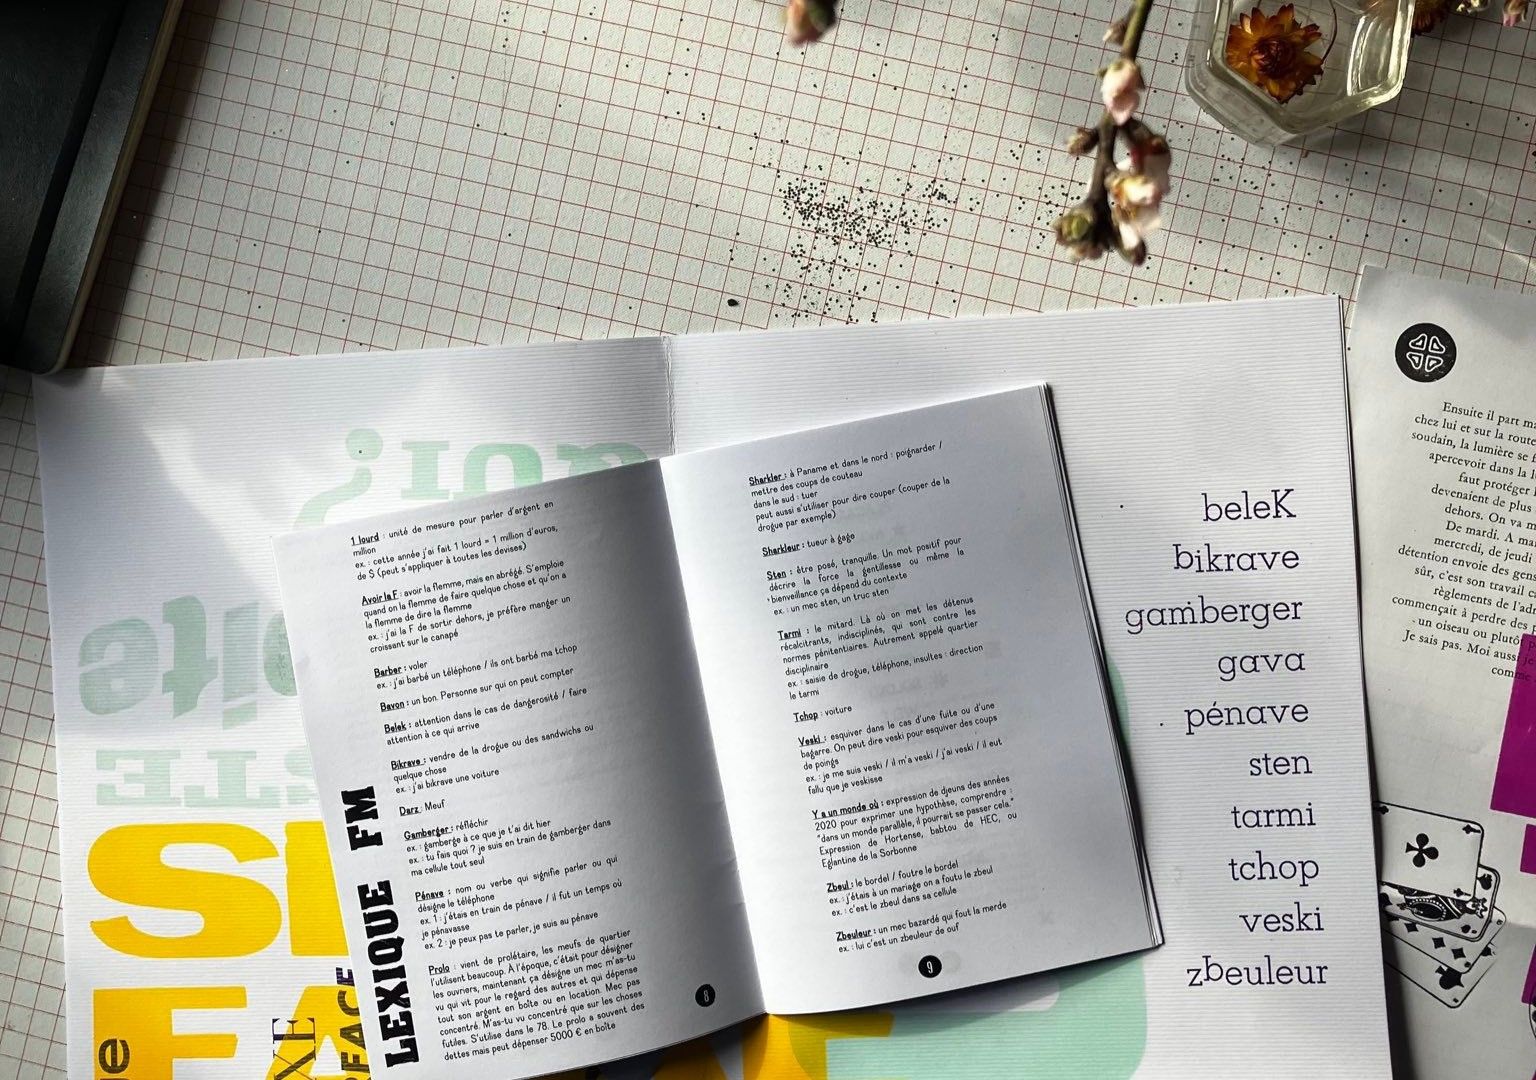 LEXIQUE FM
1 lourd : unité de mesure pour parler d'argent en
million
ex. : cette année j'ai fait 1 lourd = 1 million d'euros,
de $ (peut s'appliquer à toutes les devises)
Avoir la F : avoir la flemme, mais en abrégé. S'emploie
quand on la flemme de faire quelque chose et qu'on a
la flemme de dire la flemme
ex. : j'ai la F de sortir dehors, je préfère manger un
croissant sur le canapé
Barber : voler
ex. : j'ai barbé un téléphone / ils ont barbé ma tchop
Bavon : un bon. Personne sur qui on peut compter
Belek : attention dans le cas de dangerosité / faire
attention à ce qui arrive
Bikrave : vendre de la drogue ou des sandwichs ou
quelque chose
ex. : j'ai bikrave une voiture
Darz : Meuf
Gamberger : réfléchir
ex. : gamberge à ce que je t'ai dit hier
ex. : tu fais quoi ? je suis en train de gamberger dans
ma cellule tout seul
Pénave : nom ou verbe qui signifie parler ou qui
désigne le téléphone
ex. 1 : j'étais en train de pénave / il fut un temps où
je pénavasse
ex. 2 : je peux pas te parler, je suis au pénave
Prolo : vient de prolétaire, les meufs de quartier
l'utilisent beaucoup. À l'époque, c'était pour désigner
les ouvriers, maintenant ça désigne un mec m'as-tu
vu qui vit pour le regard des autres et qui dépense
tout son argent en boîte ou en location. Mec pas
concentré. M'as-tu vu concentré que sur les choses
futiles. S'utilise dans le 78. Le prolo a souvent des
dettes mais peut dépenser 5000 € en boîte
8
Sharkler : à Paname et dans le nord : poignarder /
mettre des coups de couteau
dans le sud : tuer
peut aussi s'utiliser pour dire couper (couper de la
drogue par exemple)
Sharkleur : tueur à gage
Sten : être posé, tranquille. Un mot positif pour
décrire la force la gentillesse ou même la
bienveillance ça dépend du contexte
ex. : un mec sten, un truc sten
Tarmi : le mitard. Là où on met les détenus
récalcitrants, indisciplinés, qui sont contre les
normes pénitentiaires. Autrement appelé quartier
disciplinaire
ex. : saisie de drogue, téléphone, insultes : direction
le tarmi
Tchop : voiture
Veski : esquiver dans le cas d'une fuite ou d'une
bagarre. On peut dire veski pour esquiver des coups
de poings
ex. : je me suis veski / il m'a veski / j'ai veski / il eut
fallu que je veskisse
Y a un monde où : expression de djeuns des années
2020 pour exprimer une hypothèse, comprendre :
"dans un monde parallèle, il pourrait se passer cela."
Expression de Hortense, babtou de HEC, ou
Eglantine de la Sorbonne
Zbeul : le bordel / foutre le bordel
ex. : j'étais à un mariage on a foutu le zbeul
ex. : c'est le zbeul dans sa cellule
Zbeuleur : un mec bazardé qui fout la merde
ex. : lui c'est un zbeuleur de ouf
9
beleK
bikrave
gamberger
gava
pénave
sten
tarmi
tchop
veski
zbeuleur
Ensuite il part
chez lui et sur la route
soudain, la lumière se
apercevoir dans la
faut protéger
devenaient de plus
dehors. On va
De mardi. A
mercredi, de jeudi
détention envoie des
sûr, c'est son travail
règlements de
commençait à perdre des
un oiseau ou
Je sais pas. Moi